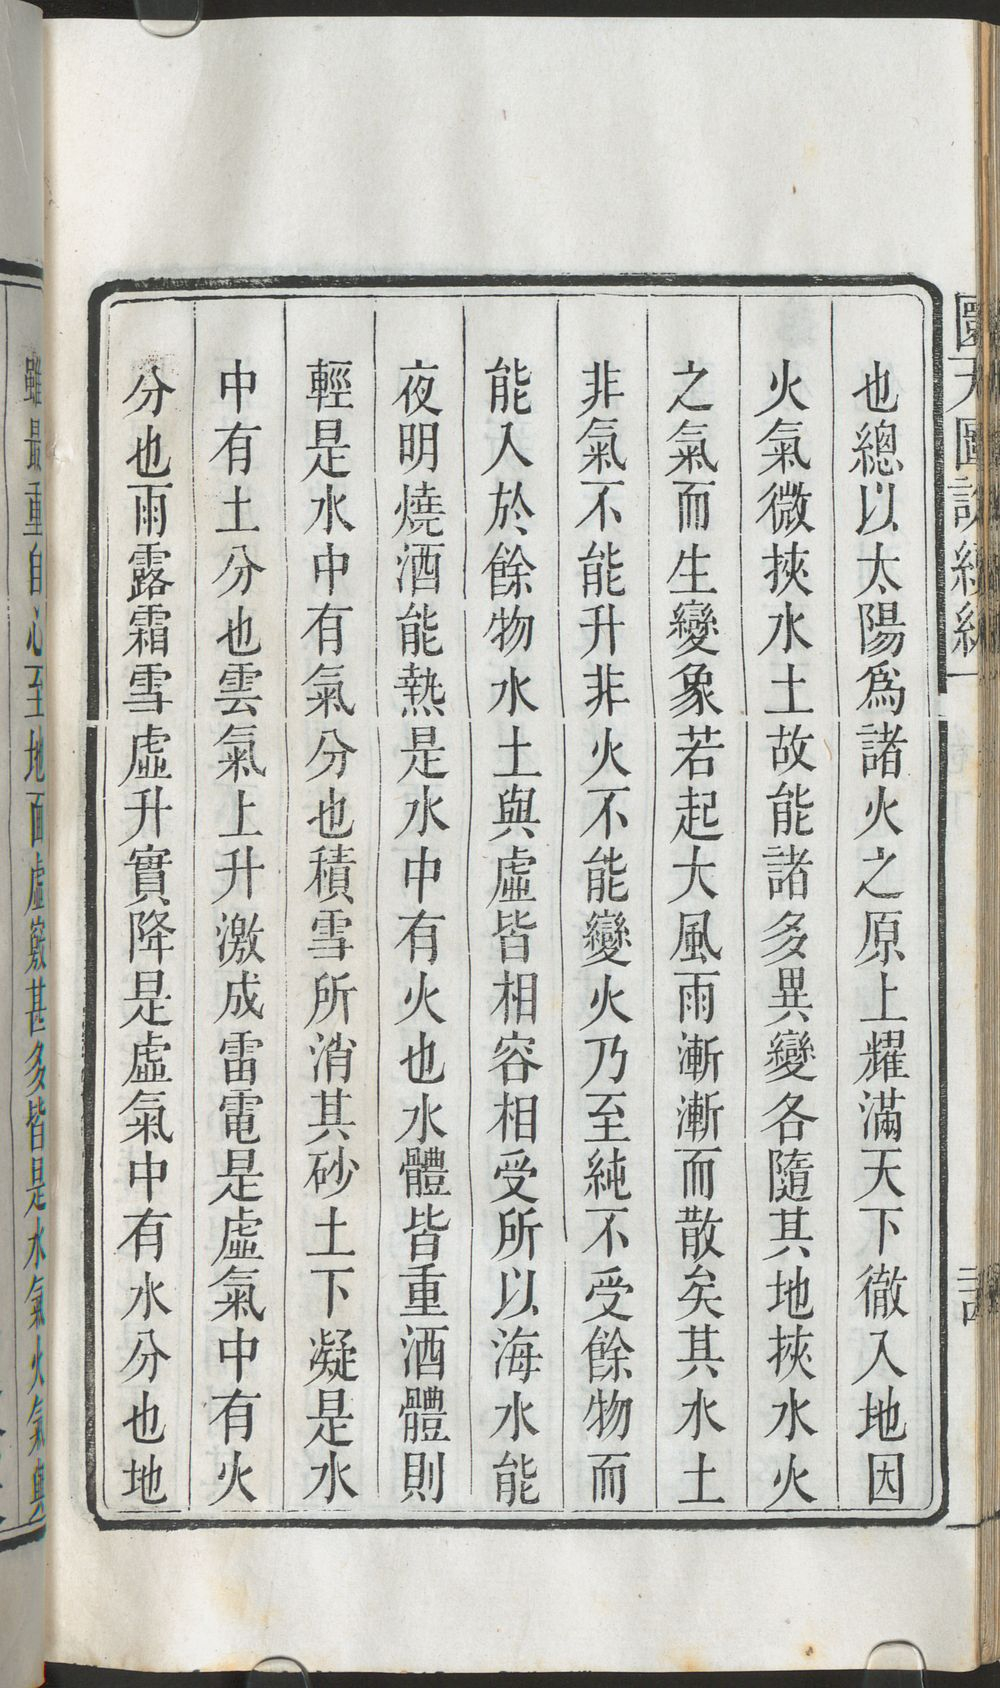 也總以太陽爲諸火之原上耀滿天下徹入地因
火氣微挾水土故能諸多異變各隨其地挾水火
之氣而生變象若起大風雨漸漸而散矣其水土
非氣不能升非火不能變火乃至純不受餘物而
能入於餘物水土與虛皆相容相受所以海水能
夜明燒酒能熱是水中有火也水體皆重酒體則
輕是水中有氣分也積雪所消其砂土下凝是水
中有土分也雲氣上升激成雷電是虛氣中有火
分也雨露霜雪虛升實降是虛氣中有水分也地
雖最重自心至地面虛竅甚多皆是水氣火氣與